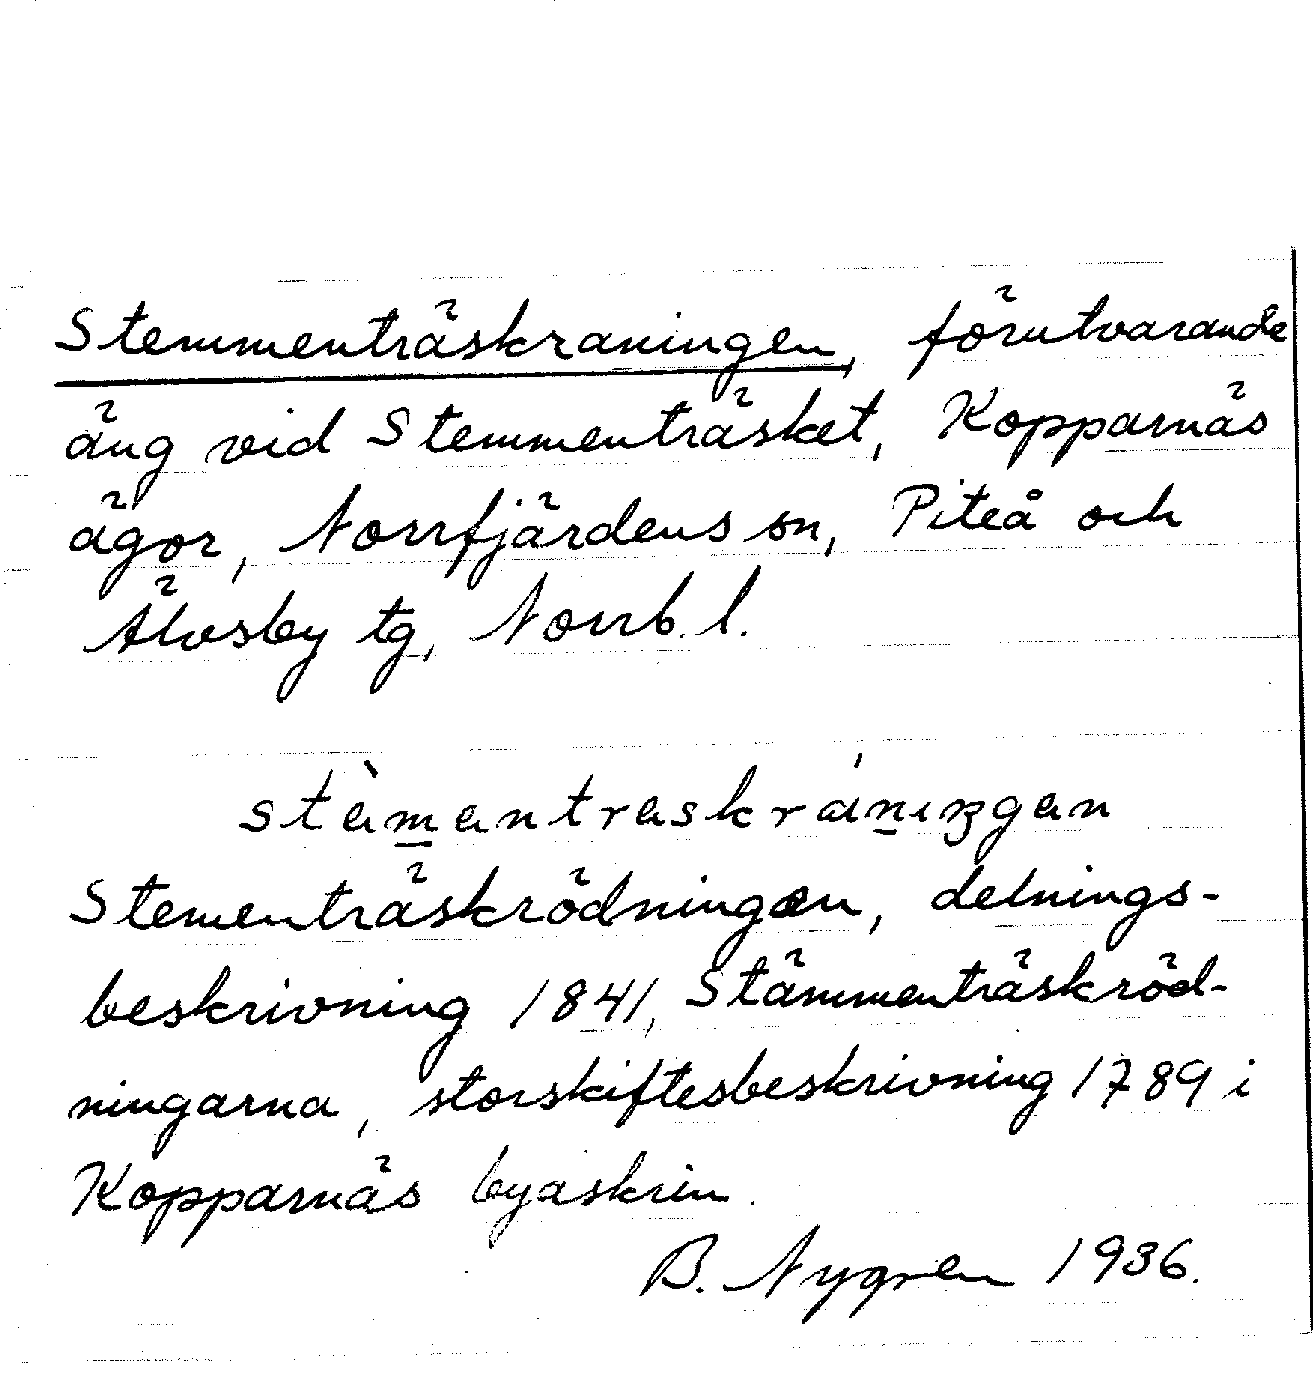 Stemmenträskraningen, förutvarande
äng vid Stemmenträsket, Kopparnäs
ägor, Norrfjärdens sn, Piteå och
Älvsby tg, Norrb. l.
stämentreskräningen
Stementräskrödningen, delnings-
beskrivning 1841, Stämmenträskröd-
ningarna, storskiftesbeskrivning 1789 i
Kopparnäs byaskrin.
B. Nygren 1936.